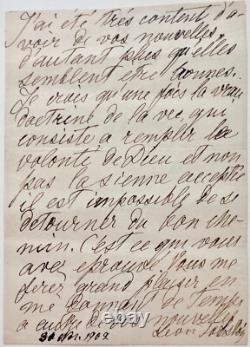 J'ai été très content d'a
voir de vos nouvelles
d'autant plus qu'elles
semblent être bonnes.
Je crois qu'une fois la vraie
doctrine de la vie, qui
consiste à remplir la
volonté de Dieu et non
pas la sienne acceptée
il est impossible de se
détourner du bon che-
min. C'est ce que vous
avez éprouvé. Vous me
ferez grand plaisir en
me donnant de temps
à autre de vos nouvelles
Léon Tolstoy
1902